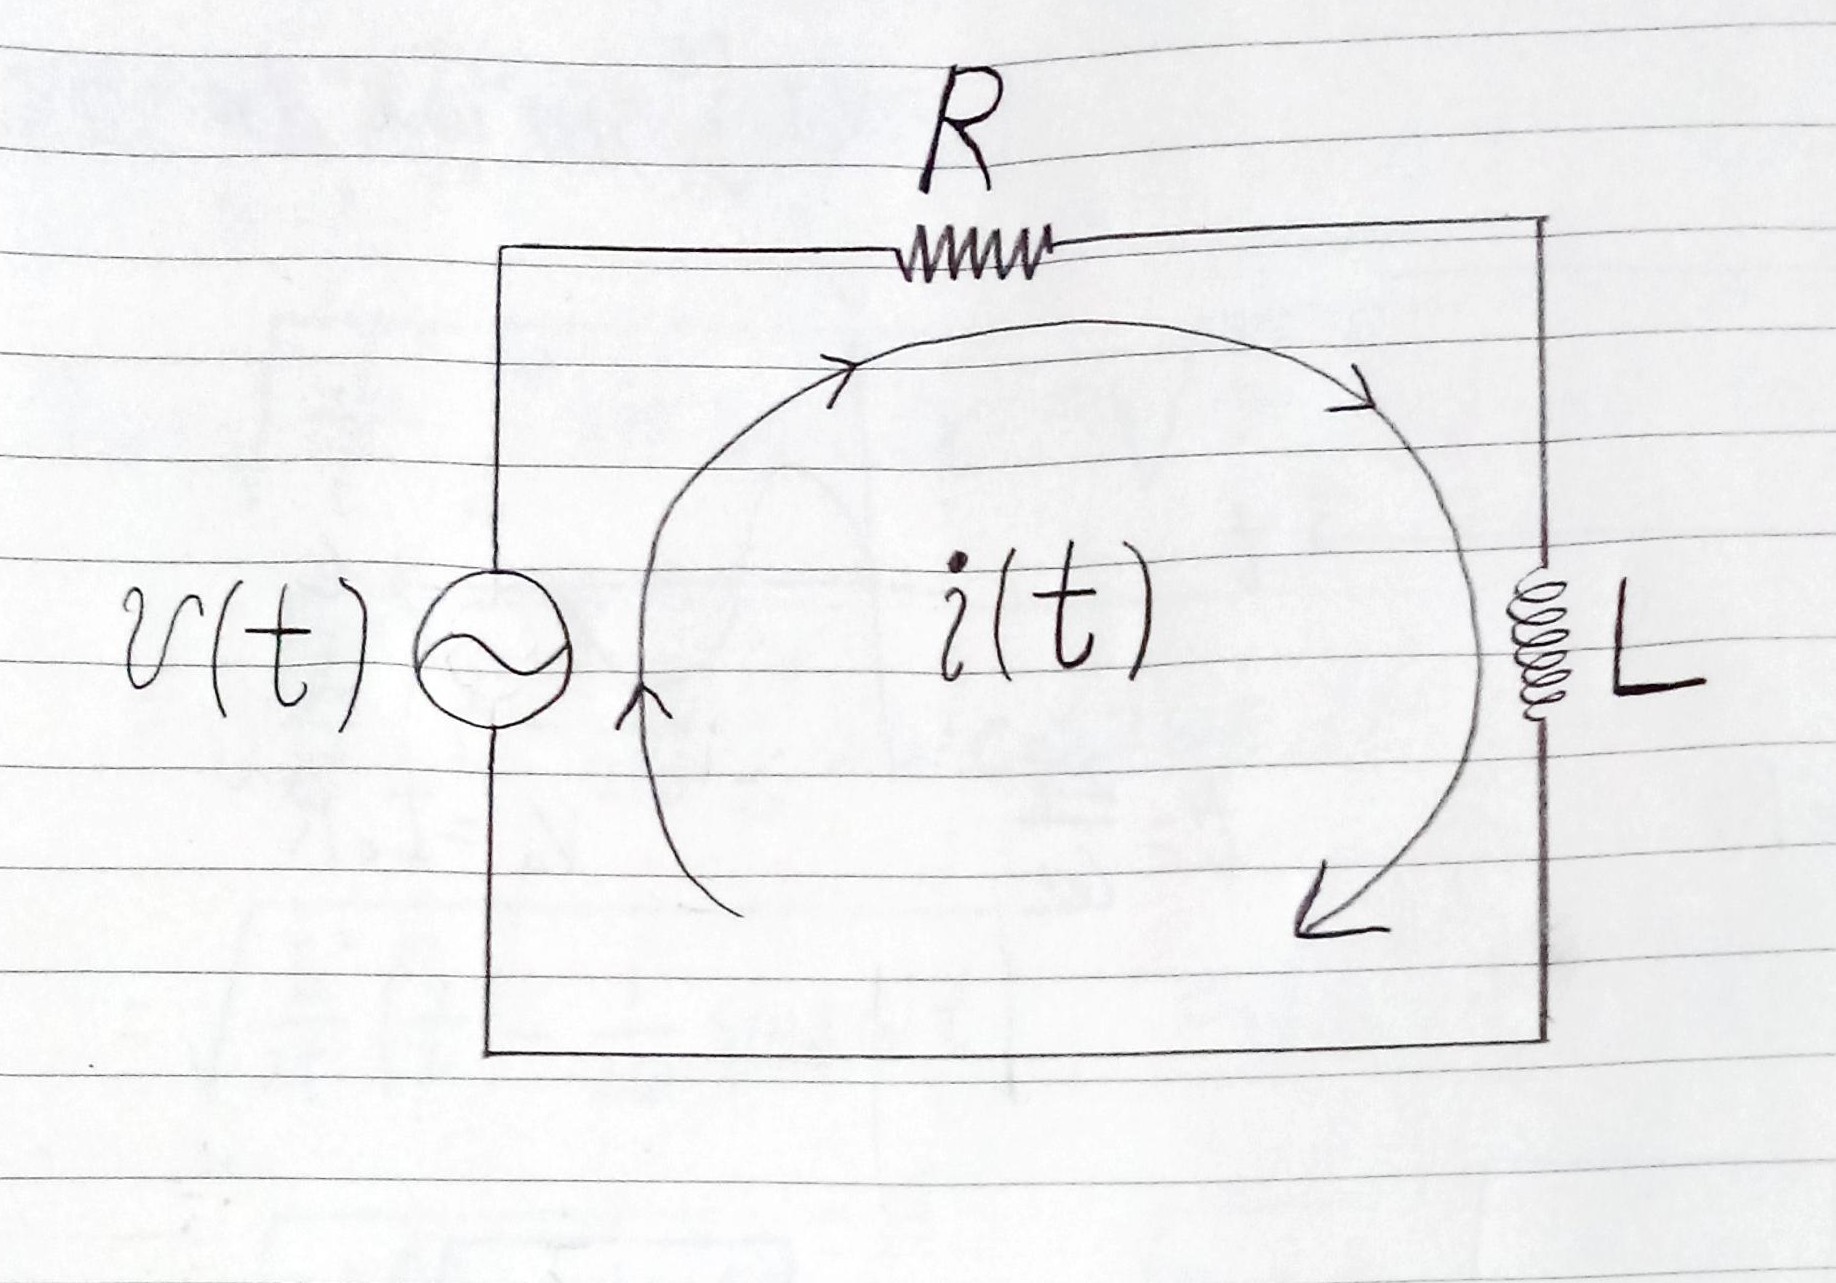 R
v(t)
i(t)
L